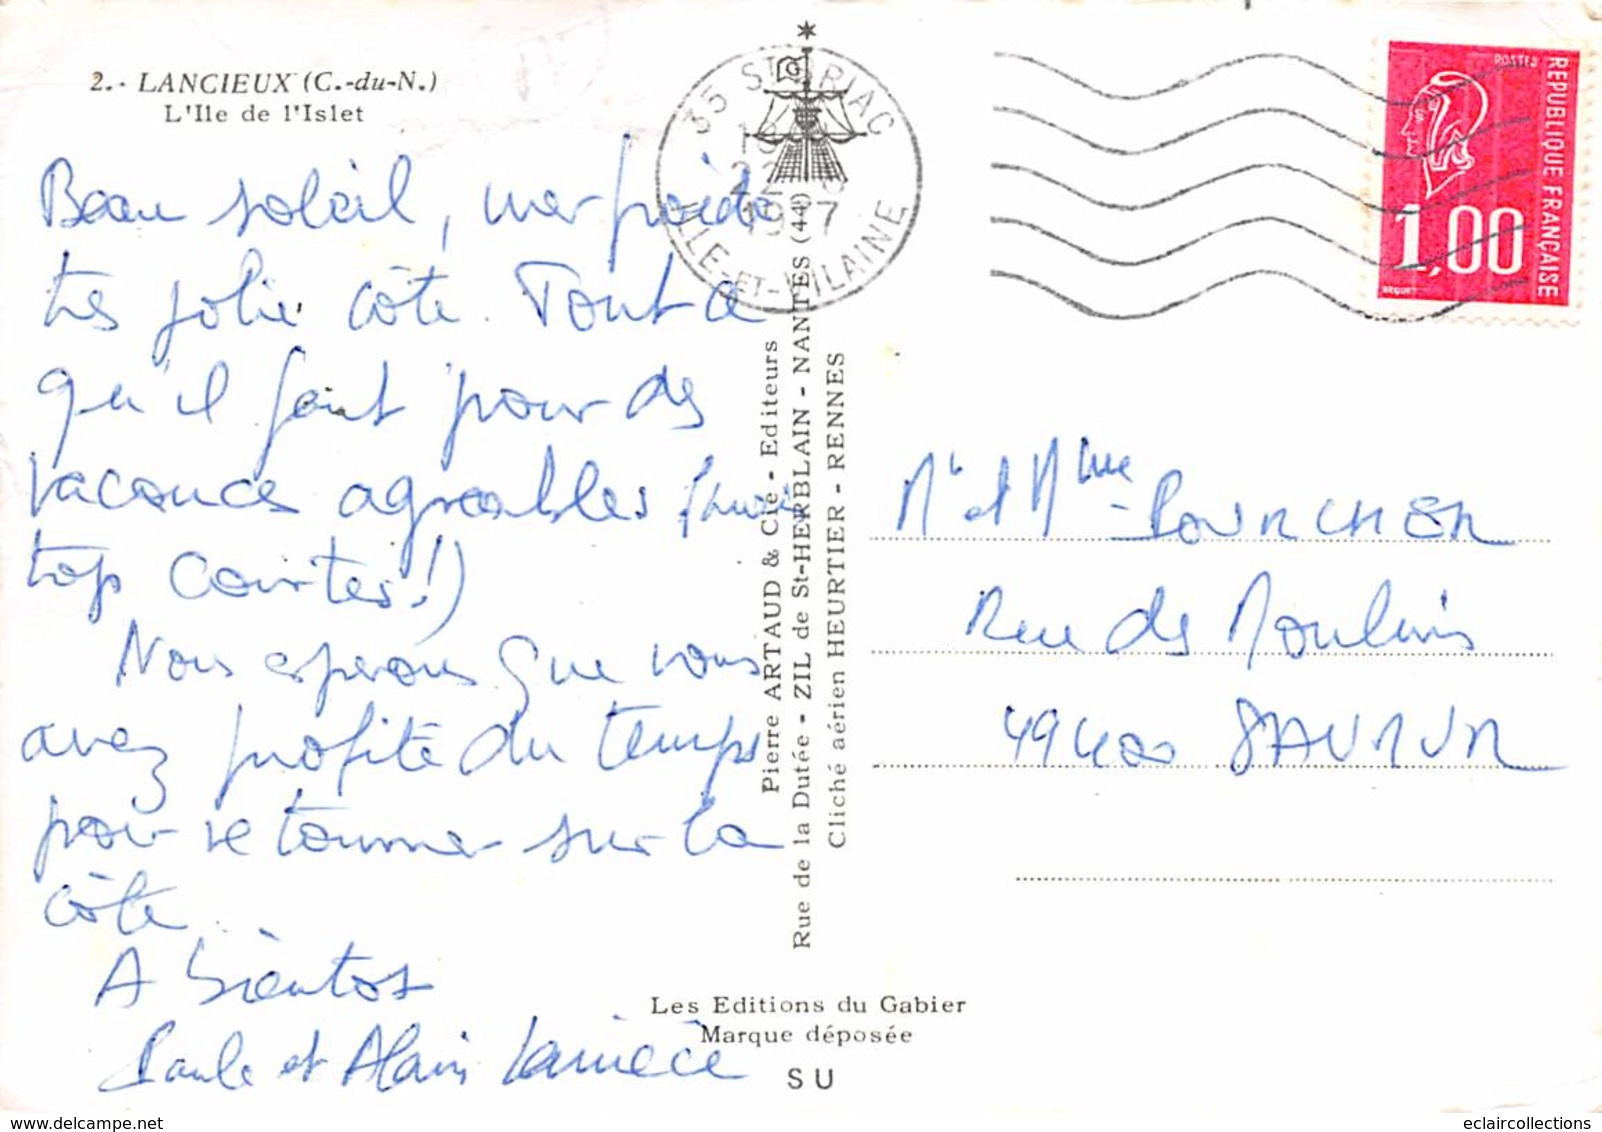 2.- LANCIEUX (C.-du-N.)
L'Ile de l'Islet
Beau soleil, mer froide
très jolie côte. Tout ce
qu'il faut pour des
vacances agréables (mais
trop courtes!)
Nous esperons que vous
avez profité du temps
pour retourner sur la
côte
A bientôt
Paule et Alain
35 ST BRIAC
ILLE-ET-VILAINE
Pierre ARTAUD & Cie - Editeurs
Rue de la Dutée - ZIL de St-HERBLAIN - NANTES (44)
Cliché aérien HEURTIER - RENNES
Les Editions du Gabier
Marque déposée
SU
POSTES
REPUBLIQUE FRANÇAISE
1,00
BEQUET
Mr et Mme POURCHER
Rue des Moulins
49400 SAUMUR
eclaircollections